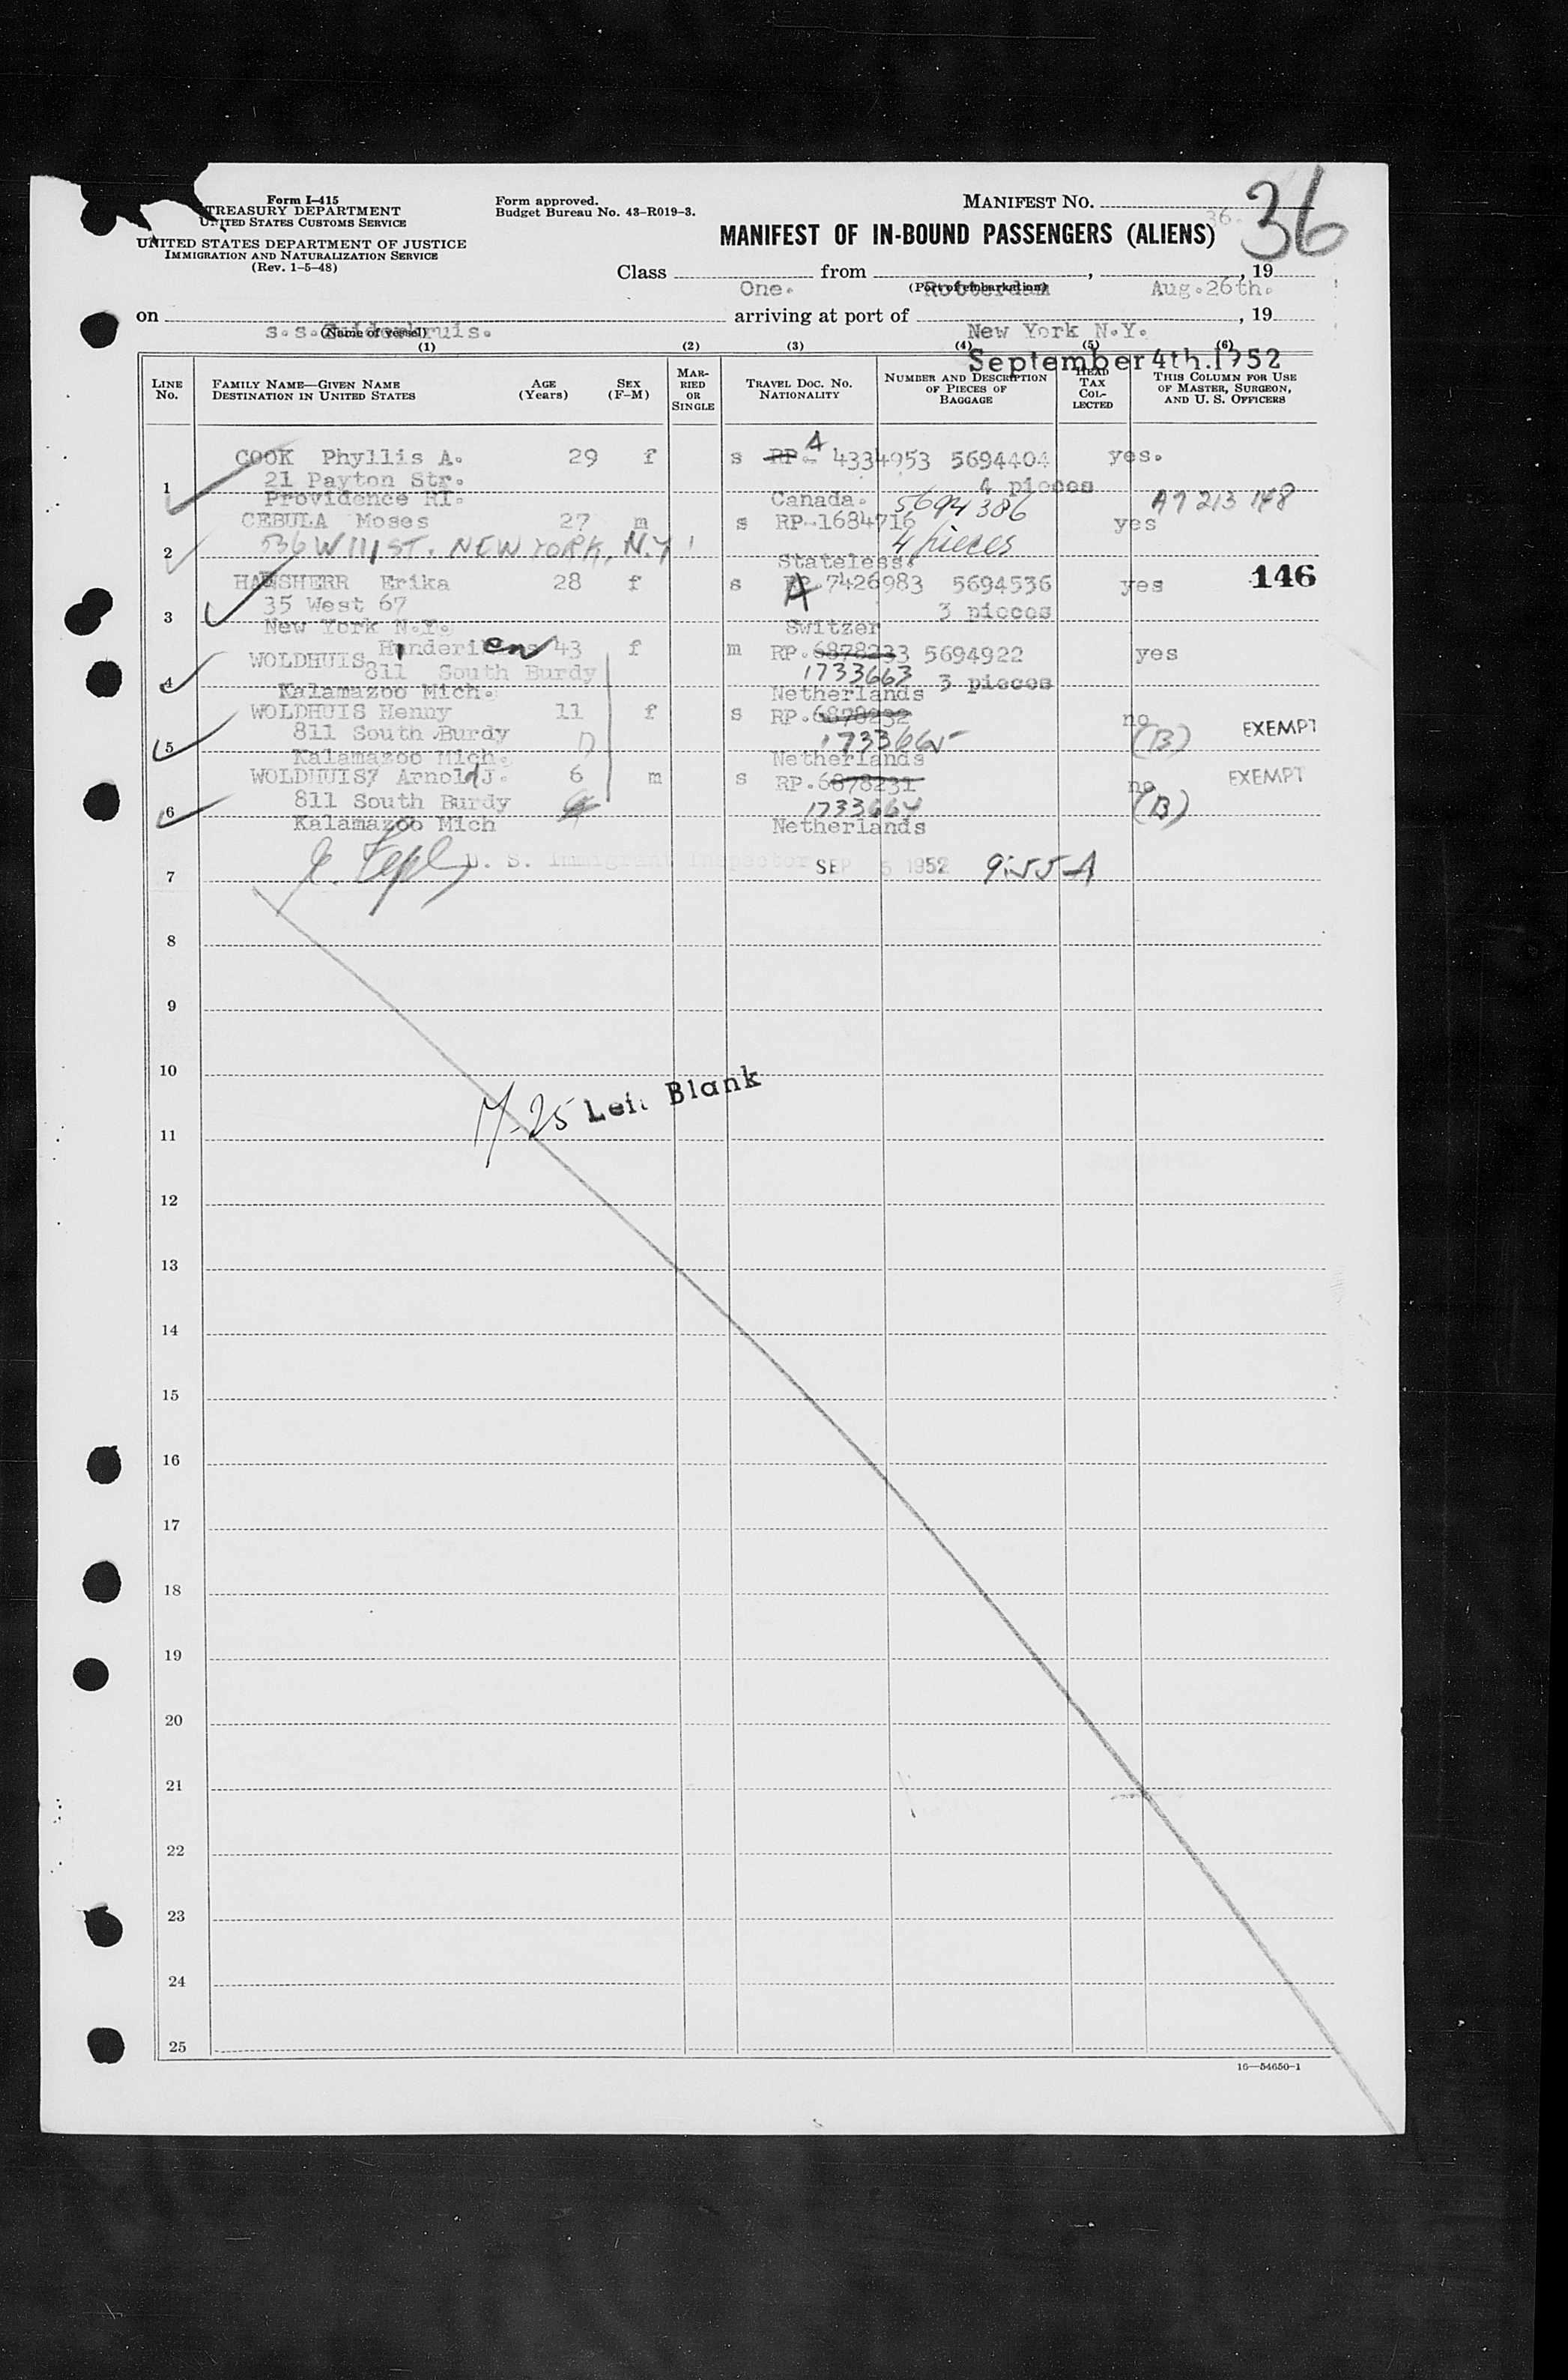 Form I-415
TREASURY DEPARTMENT
UNITED STATES CUSTOMS SERVICE
UNITED STATES DEPARTMENT OF JUSTICE
IMMIGRATION AND NATURALIZATION SERVICE
(Rev. 1-5-48)
Form approved.
Budget Bureau No. 43-R019-3.
MANIFEST NO.
36.
36
MANIFEST OF IN-BOUND PASSENGERS (ALIENS)
Class from , , 19
One. (Port of embarkation) Rotterdam Aug. 26th.
on arriving at port of , 19
s.s. (Name of vessel) New York N.Y.
September 4th. 1952
(1) (2) (3) (4) (5) (6)
LINE No. FAMILY NAME—GIVEN NAME DESTINATION IN UNITED STATES AGE (Years) SEX (F-M) MARRIED OR SINGLE TRAVEL DOC. NO. NATIONALITY NUMBER AND DESCRIPTION OF PIECES OF BAGGAGE HEAD TAX COLLECTED THIS COLUMN FOR USE OF MASTER, SURGEON, AND U. S. OFFICERS
COOK Phyllis A. 29 f s RP. A 4334953 5694404 yes.
1 21 Payton Str. 4 pieces
Providence RI. Canada. 5694386 A7 213 148
CEBULA Moses 27 m s RP-1684716 yes
2 536 W 111 ST. NEW YORK, N.Y. 4 pieces
Stateless.
HAUSHERR Erika 28 f s A 7426983 5694536 yes 146
3 35 West 67 3 pieces
New York N.Y. Switzer
WOLDHUIS Henderiken 43 f m RP. 6878233 5694922 yes
4 811 South Burdy 1733663 3 pieces
Kalamazoo Mich. Netherlands
WOLDHUIS Henny 11 f s RP. 6878232 no EXEMPT
5 811 South Burdy 1733665 (B)
Kalamazoo Mich. Netherlands
WOLDHUIS Arnold J. 6 m s RP. 6878231 no EXEMPT
6 811 South Burdy 1733664 (B)
Kalamazoo Mich Netherlands
7 U. S. Immigrant Inspector SEP 5 1952 9:55 A
8
9
10
7-25 Left Blank
11
12
13
14
15
16
17
18
19
20
21
22
23
24
25
16—54650-1